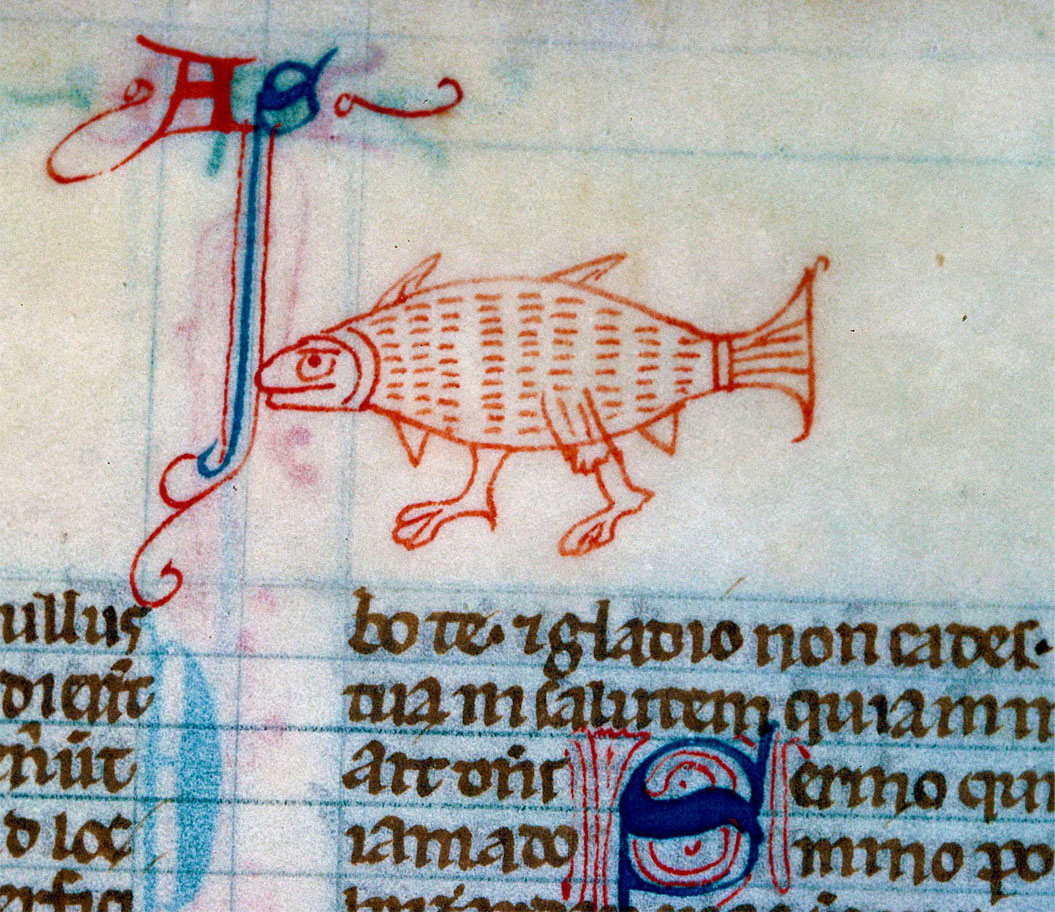 AS
ullus
d loc
bo te· ⁊ gladio non cades·
tua in salutem quia in m
ait dn̄s Sermo qui
iam a do mino po